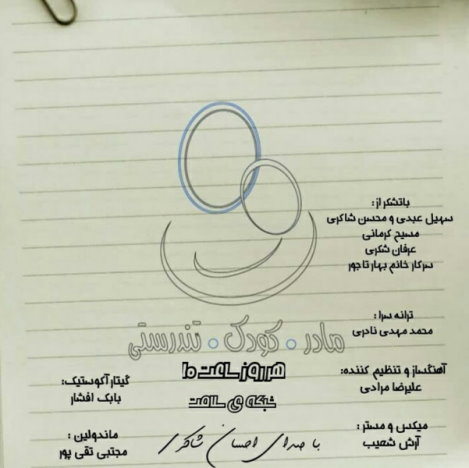 باتشکر از :
سهیل عبدی و محسن شاکری
مسیح کرمانی
عرفان شکری
سرکار خانم بهار تاجور
ترانه سرا :
محمد مهدی نادری
مادر . کودک . تندرستی
هر روز ساعت ۱۰
شبکه ی سلامت
آهنگساز و تنظیم کننده:
علیرضا مرادی
گیتار آکوستیک:
بابک افشار
میکس و مستر :
آرش شعیب
ماندولین :
مجتبی تقی پور
با صدای احسان شاکری